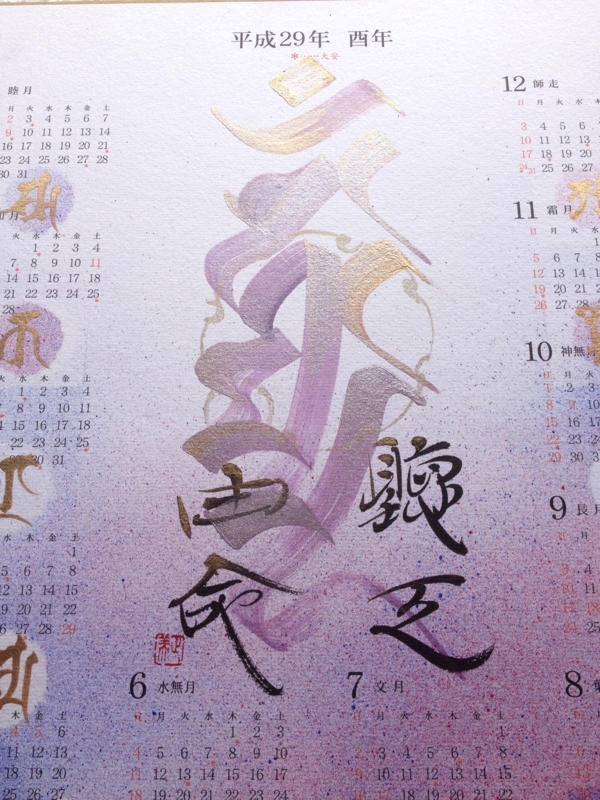 平成29年 酉年
大安
睦月
月 火 水 木 金 土
2 3 4 5 6 7
9 10 11 12 13 14
16 17 18 19 20 21
23 24 25 26 27 28
30 31
月
火 水 木 金 土
1 2 3 4
7 8 9 10 11
14 15 16 17 18
21 22 23 24 25
28
火 水 木 金 土
1 2 3 4
8 9 10 11
15 16 17 18
22 23 24 25
29 30 31
水 木 金 土
1
5 6 7 8
12 13 14 15
19 20 21 22
26 27 28 29
木 金 土
4 5 6
11 12 13
18 19 20
聽天
由命
6 水無月
日 月 火 水 木 金 土
1 2 3
4 5 6 7 8 9 10
11 12 13 14 15 16 17
18 19 20 21 22 23 24
7 文月
日 月 火 水 木 金 土
1
2 3 4 5 6 7 8
9 10 11 12 13 14 15
16 17 18 19 20 21 22
8
12 師走
日 月 火 水 木
3 4 5 6
10 11 12 13
17 18 19 20
24 31 25 26 27
11 霜月
日 月 火 水
5 6 7 8
12 13 14 15
19 20 21 22
26 27 28
10 神無月
日 月 火 水
1 2 3
8 9 10
15 16 17
22 23 24
29 30 31
9 長月
日 月
3 4
10 11
17 18
24 25